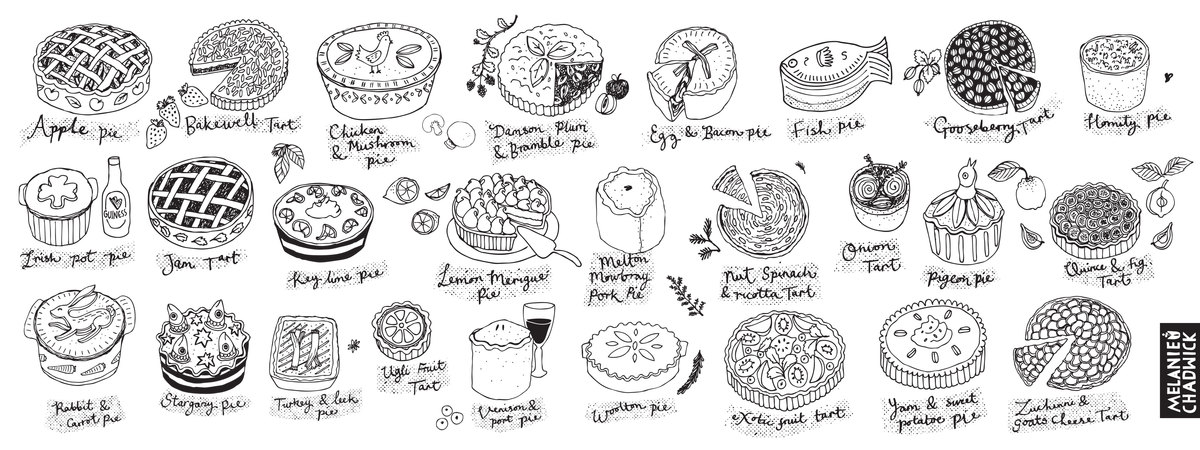 Apple pie
Bakewell Tart
Chicken
& Mushroom
pie
Damson Plum
& Bramble pie
Egg & Bacon pie
Fish pie
Gooseberry Tart
Homity pie
GUINESS
Irish pot pie
Jam Tart
Key lime pie
Lemon Merigue
Pie
Melton
Mowbray
Pork Pie
Nut Spinach
& ricotta Tart
Onion
Tart
Pigeon pie
Quince & fig
Tart
Rabbit &
Carrot Pie
Stargazy Pie
Turkey & leek
pie
Ugli Fruit
Tart
Venison &
port pie
Woolton pie
exotic fruit tart
Yam & sweet
potatoe pie
Zuchinni &
goats Cheese Tart
MELANIE
CHADWICK